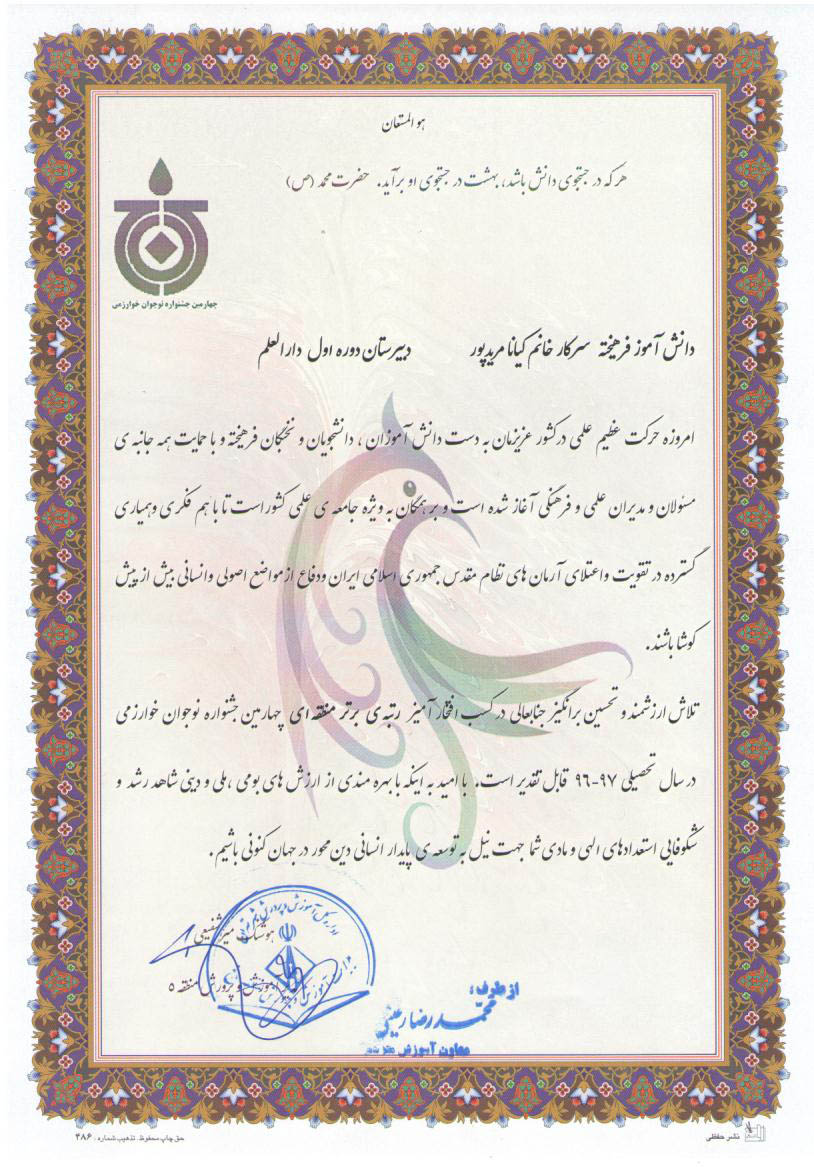 هو المستعان
هر که در جستجوی دانش باشد، بهشت در جستجوی او برآید. حضرت محمد (ص)
چهارمین جشنواره نوجوان خوارزمی
دانش آموز فرهیخته سرکار خانم کیانا مریدپور دبیرستان دوره اول دارالعلم
امروزه حرکت عظیم علمی درکشور عزیزمان به دست دانش آموزان ، دانشجویان و نخبگان فرهیخته و با حمایت همه جانبه ی
مسئولان و مدیران علمی و فرهنگی آغاز شده است و بر همگان به ویژه جامعه ی علمی کشور است تا با هم فکری وهمیاری
گسترده در تقویت واعتلای آرمان های نظام مقدس جمهوری اسلامی ایران ودفاع ازمواضع اصولی وانسانی بیش از پیش
کوشا باشند.
تلاش ارزشمند و تحسین برانگیز جنابعالی در کسب افتخار آمیز رتبه ی برتر منطقه ای چهارمین جشنواره نوجوان خوارزمی
در سال تحصیلی ۹۷-۹۶ قابل تقدیر است. با امید به اینکه با بهره مندی از ارزش های بومی ،ملی و دینی شاهد رشد و
شکوفایی استعدادهای الهی و مادی شما جهت نیل به توسعه ی پایدار انسانی دین محور در جهان کنونی باشیم.
هوشنگ میرشفیعی
آموزش و پرورش منطقه ۵
از طرف:
محمدرضا
معاون آموزش
نشر حفظی
حق چاپ محفوظ. تذهیب شماره: ۴۸۶